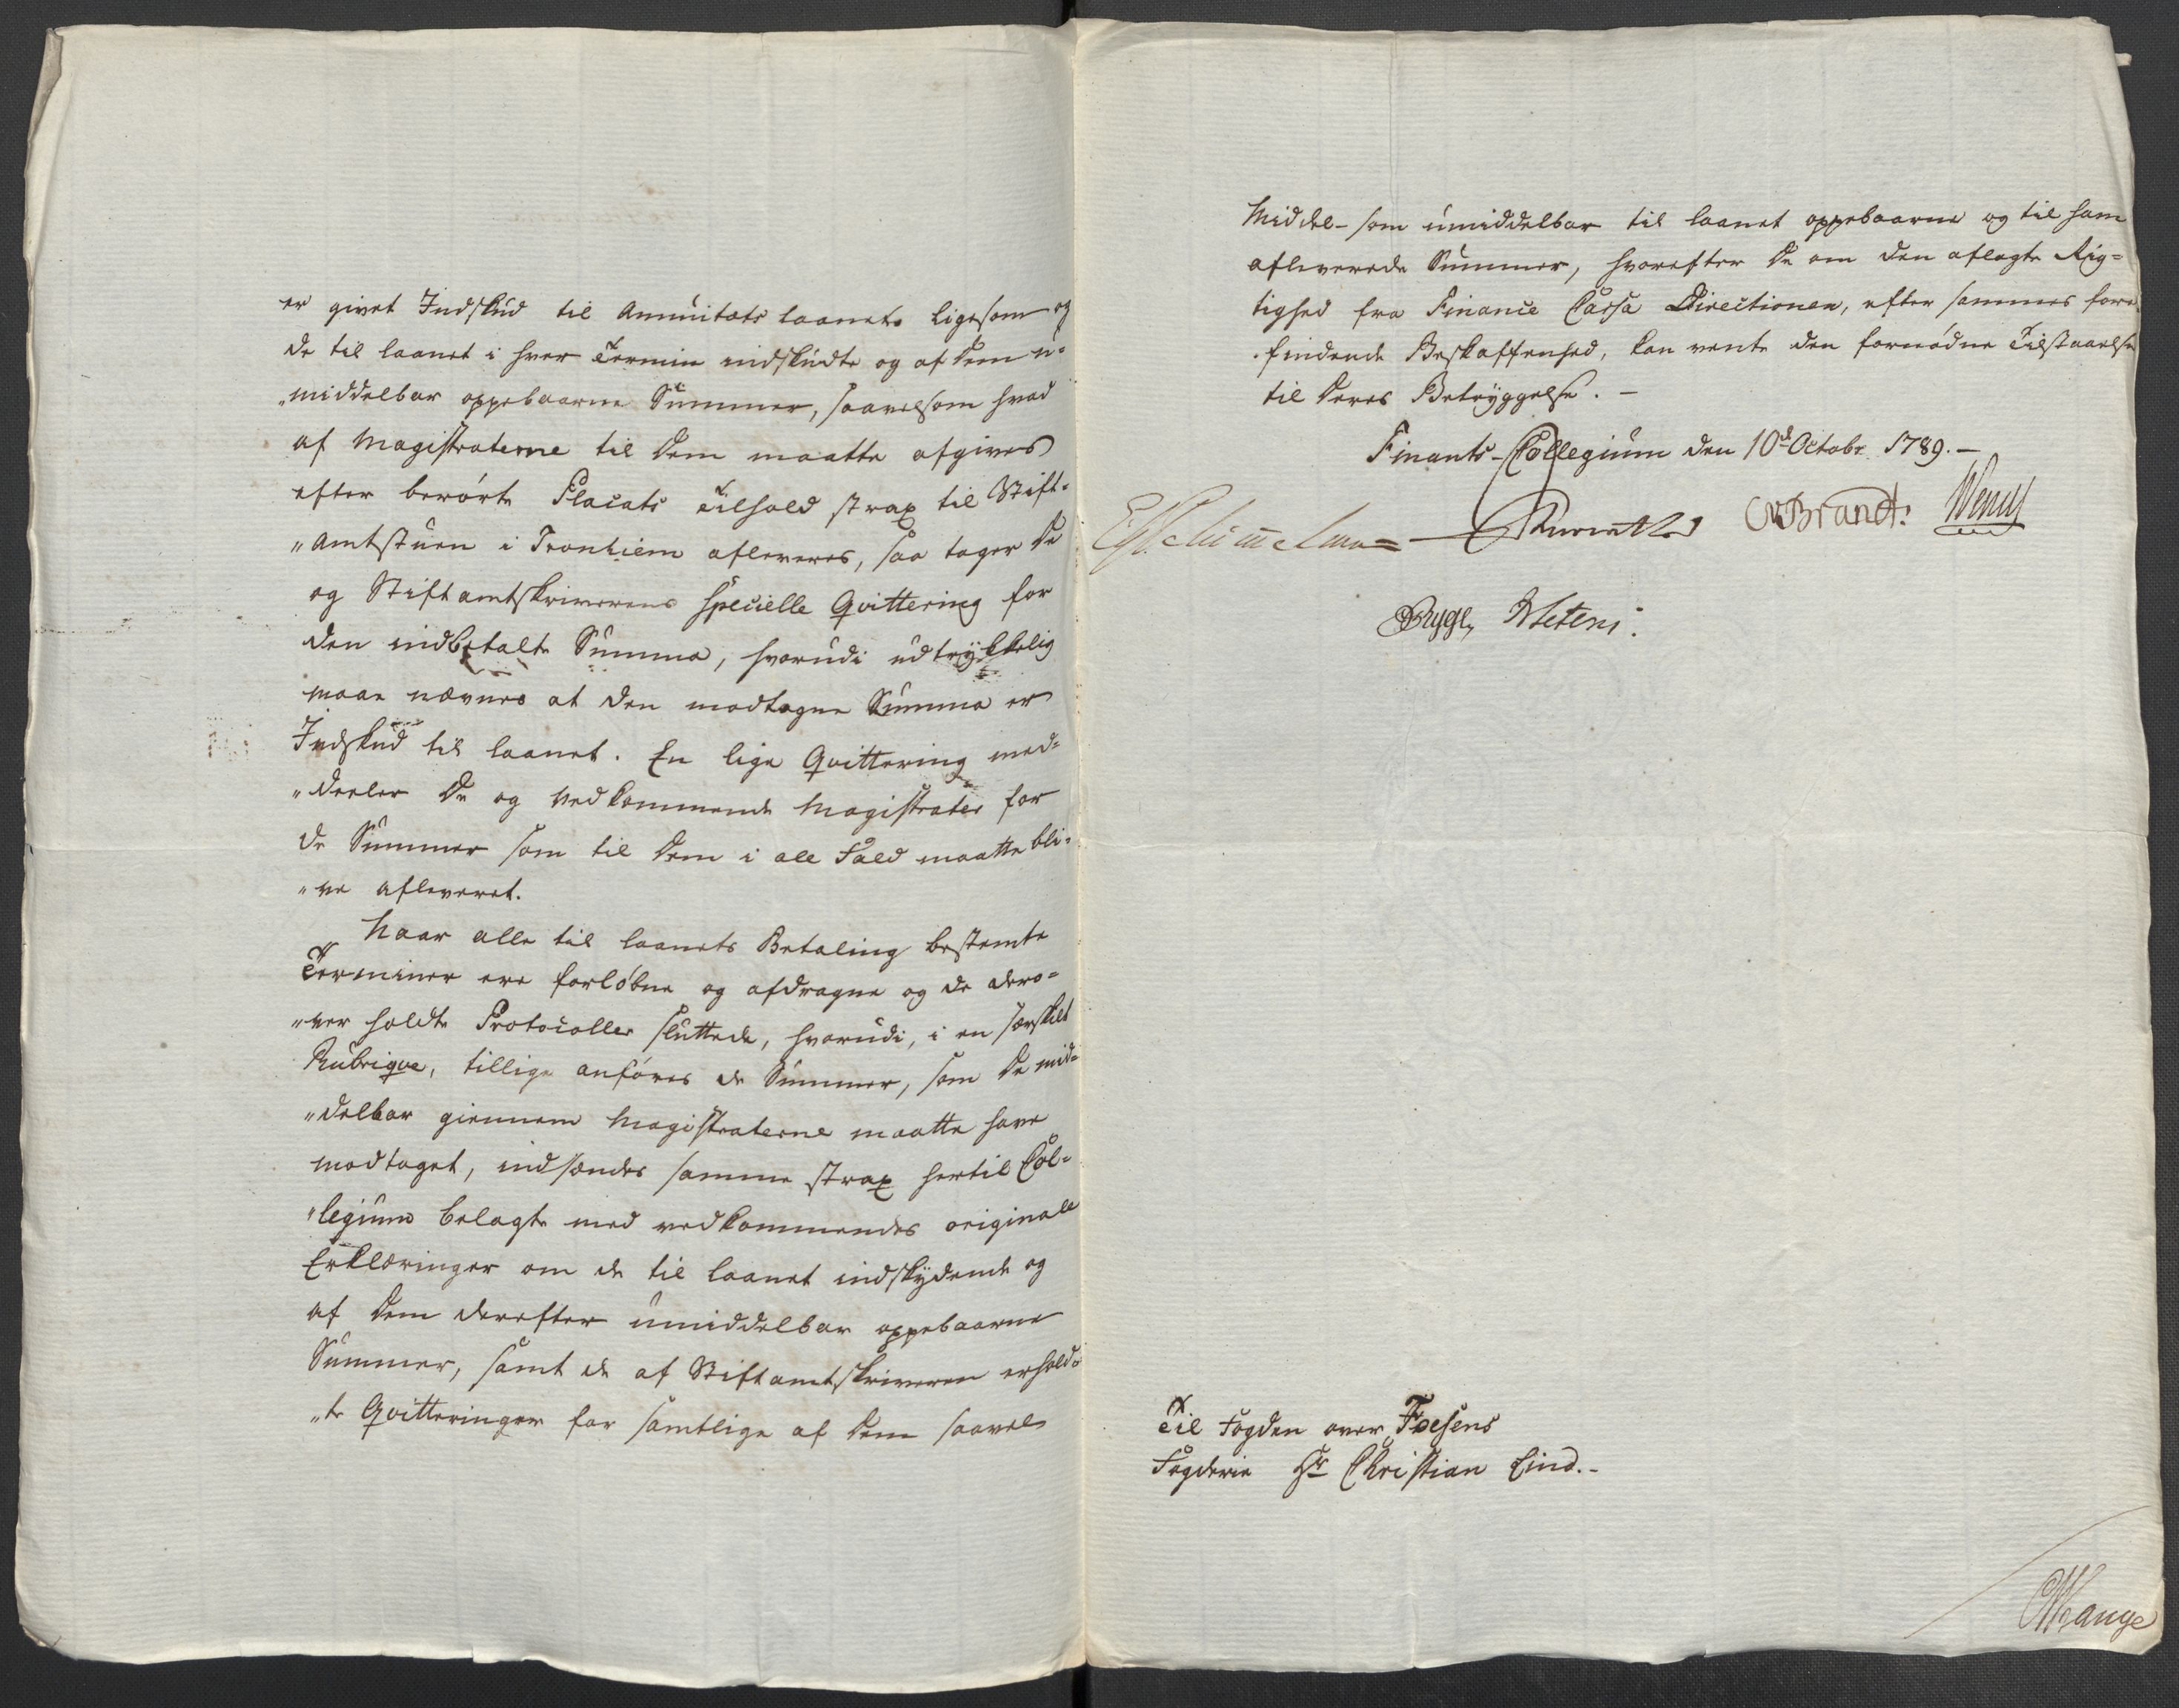 er givet Indskud til Annuitets Laanet ligesom og
de til Laanet i hver Termin indskudte og af Dem u-
"middelbar oppebaarne Summer, saavelsom hvad
af Magistraterne til Dem maatte afgives
efter berørte Placats Tilhold strax til Stift-
"amtstuen i Tronhiem afleveres, saa tager De
og Stiftamtskriverens specielle Qvittering for
den indbetalte Summa, hvorudi udtrykkelig
maae nævnes at den modtagne Summa er
Indskud til Laanet. En lige Qvittering med-
"deeler De og Vedkommende Magistrater for
de Summer som til Dem i all Fald maatte bli-
"ve afleveret.
Naar alle til Laanets Betaling bestemte
Terminer ere forløbne og afdragne og de dero-
"ver holdte Protocoller sluttede, hvorudi, i en særskilt
Rubriqve, tillige anføres de Summer, som De mid-
"delbar giennem Magistraterne maatte have
modtaget, indsendes samme strax hertil Col-
"legium belagte med vedkommendes originale
Erklæringer om de til Laanet indskydende og
af Dem derefter umiddelbar oppebaarne
Summer, samt de af Stiftamtskriveren erhold-
"te Qvitteringer for samtlige af Dem saavel
Middel- som umiddelbar til Laanet oppebaarne og til ham
afleverede Summer, hvorefter De om den aflagte Rig-
tighed fra Finance Cassa Directionen, efter sammes fore-
findende Beskaffenhed, kan vente den fornødne Tilstaaelse
til Deres Betryggelse. -
Finants-Collegium den 10de Octobr 1789. -
E Schimmelmann CBrandt: Wendt
Rygh
Til Fogden over Fosens
Fogderie Hr Christian Lind. -